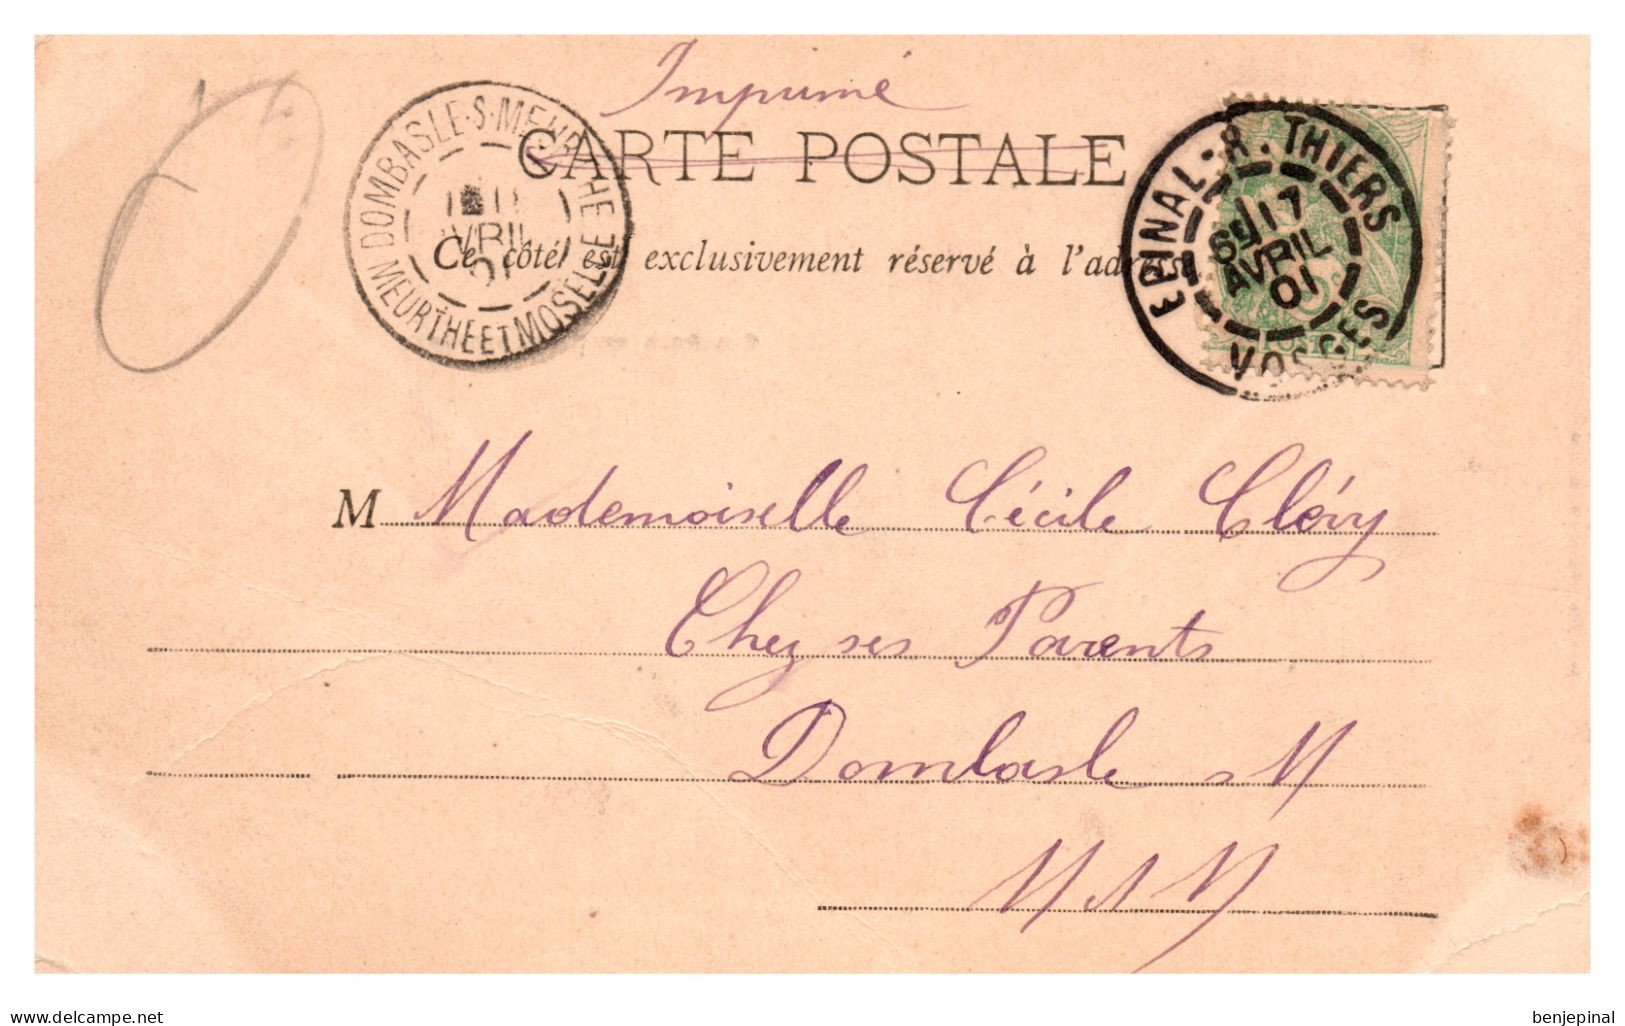 Imprimé
CARTE POSTALE
Ce côté est exclusivement réservé à l'adresse
DOMBASLE-S-MEURTHE
AVRIL
01
MEURTHE ET MOSELLE
EPINAL-R. THIERS
17
AVRIL
01
VOSGES
M Mademoiselle Cécile Cléry
Chez ses Parents
Dombasle s M
M & M
www.delcampe.net
benjepinal